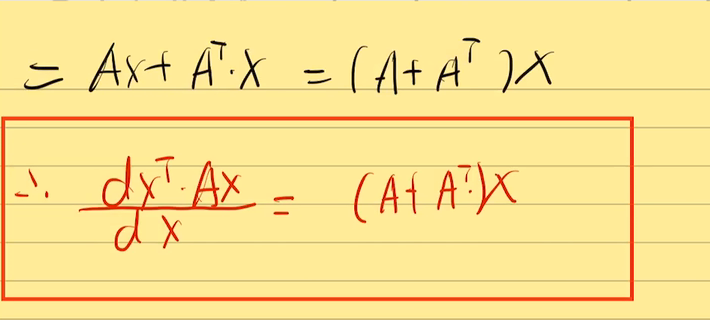 = Ax + Aᵀ·x = (A + Aᵀ)x
∴ dxᵀ·Ax / dx = (A + Aᵀ)x